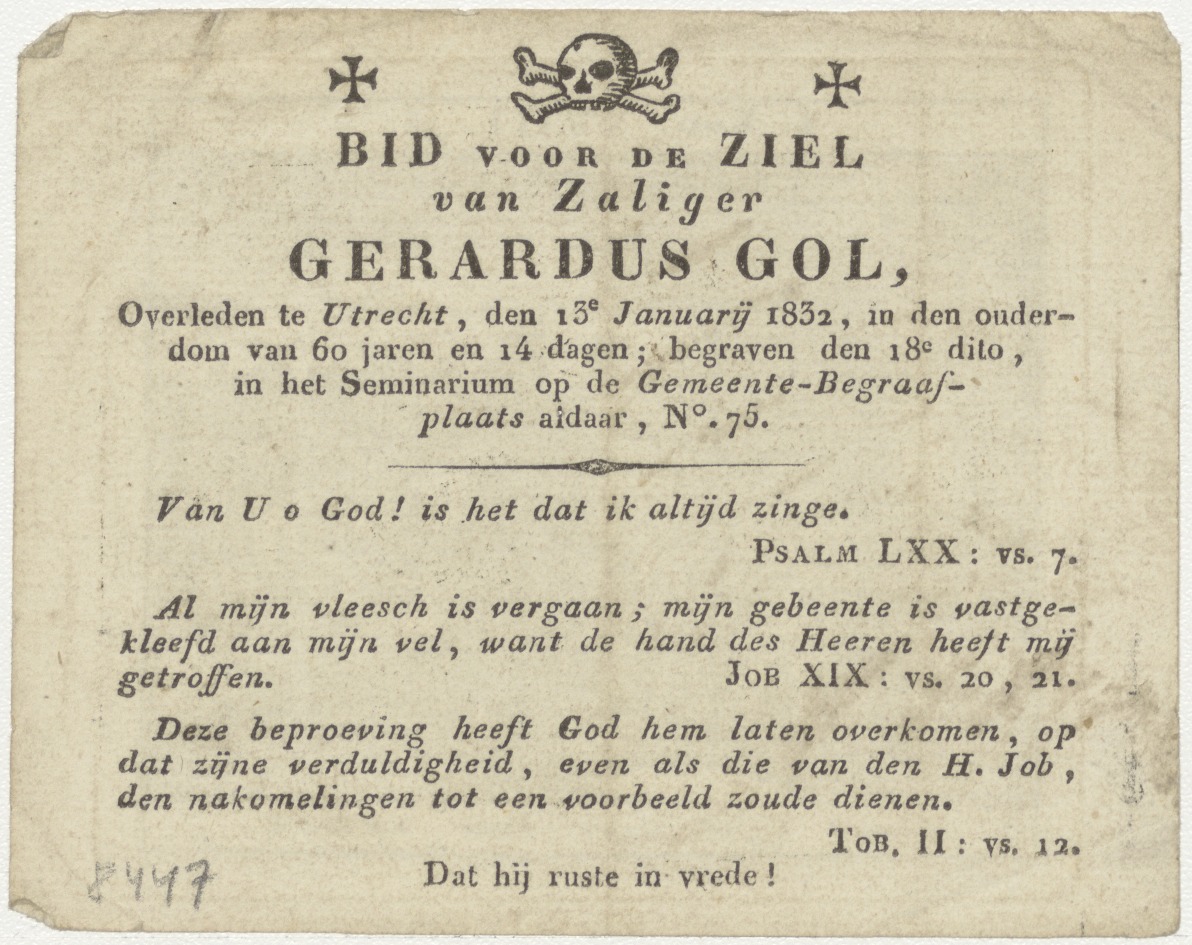 BID VOOR DE ZIEL
van Zaliger
GERARDUS GOL,
Overleden te Utrecht, den 13e Januarij 1832, in den ouder-
dom van 60 jaren en 14 dagen; begraven den 18e dito,
in het Seminarium op de Gemeente-Begraaf-
plaats aldaar, No. 75.
Van U o God! is het dat ik altijd zinge.
PSALM LXX: vs. 7.
Al mijn vleesch is vergaan; mijn gebeente is vastge-
kleefd aan mijn vel, want de hand des Heeren heeft mij
getroffen. JOB XIX: vs. 20, 21.
Deze beproeving heeft God hem laten overkomen, op
dat zijne verduldigheid, even als die van den H. Job,
den nakomelingen tot een voorbeeld zoude dienen.
TOB. II: vs. 12.
Dat hij ruste in vrede!
8447